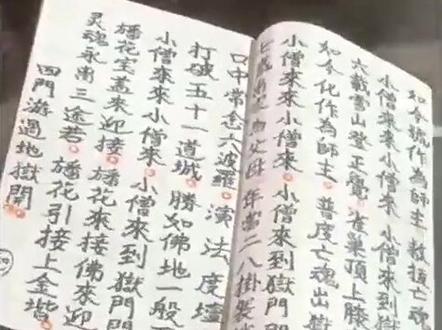 如今號作為師主。救拔亡魂
小僧來來小僧來。小僧來到獄門
六載雪山登正覺。雀巢頂上膝
如今化作為師主。普度亡魂出獄
小僧來來小僧來。小僧來到獄門
七歲為父母年當二八掛袈
口中常念六波羅。演法度壇
打破五十一道城。勝如佛地一般
小僧來來小僧來。小僧來到獄門
旛花宝蓋來迎接。旛花來接佛來迎
灵魂永离三途苦。旛花引接上金堦
四門游過地獄開